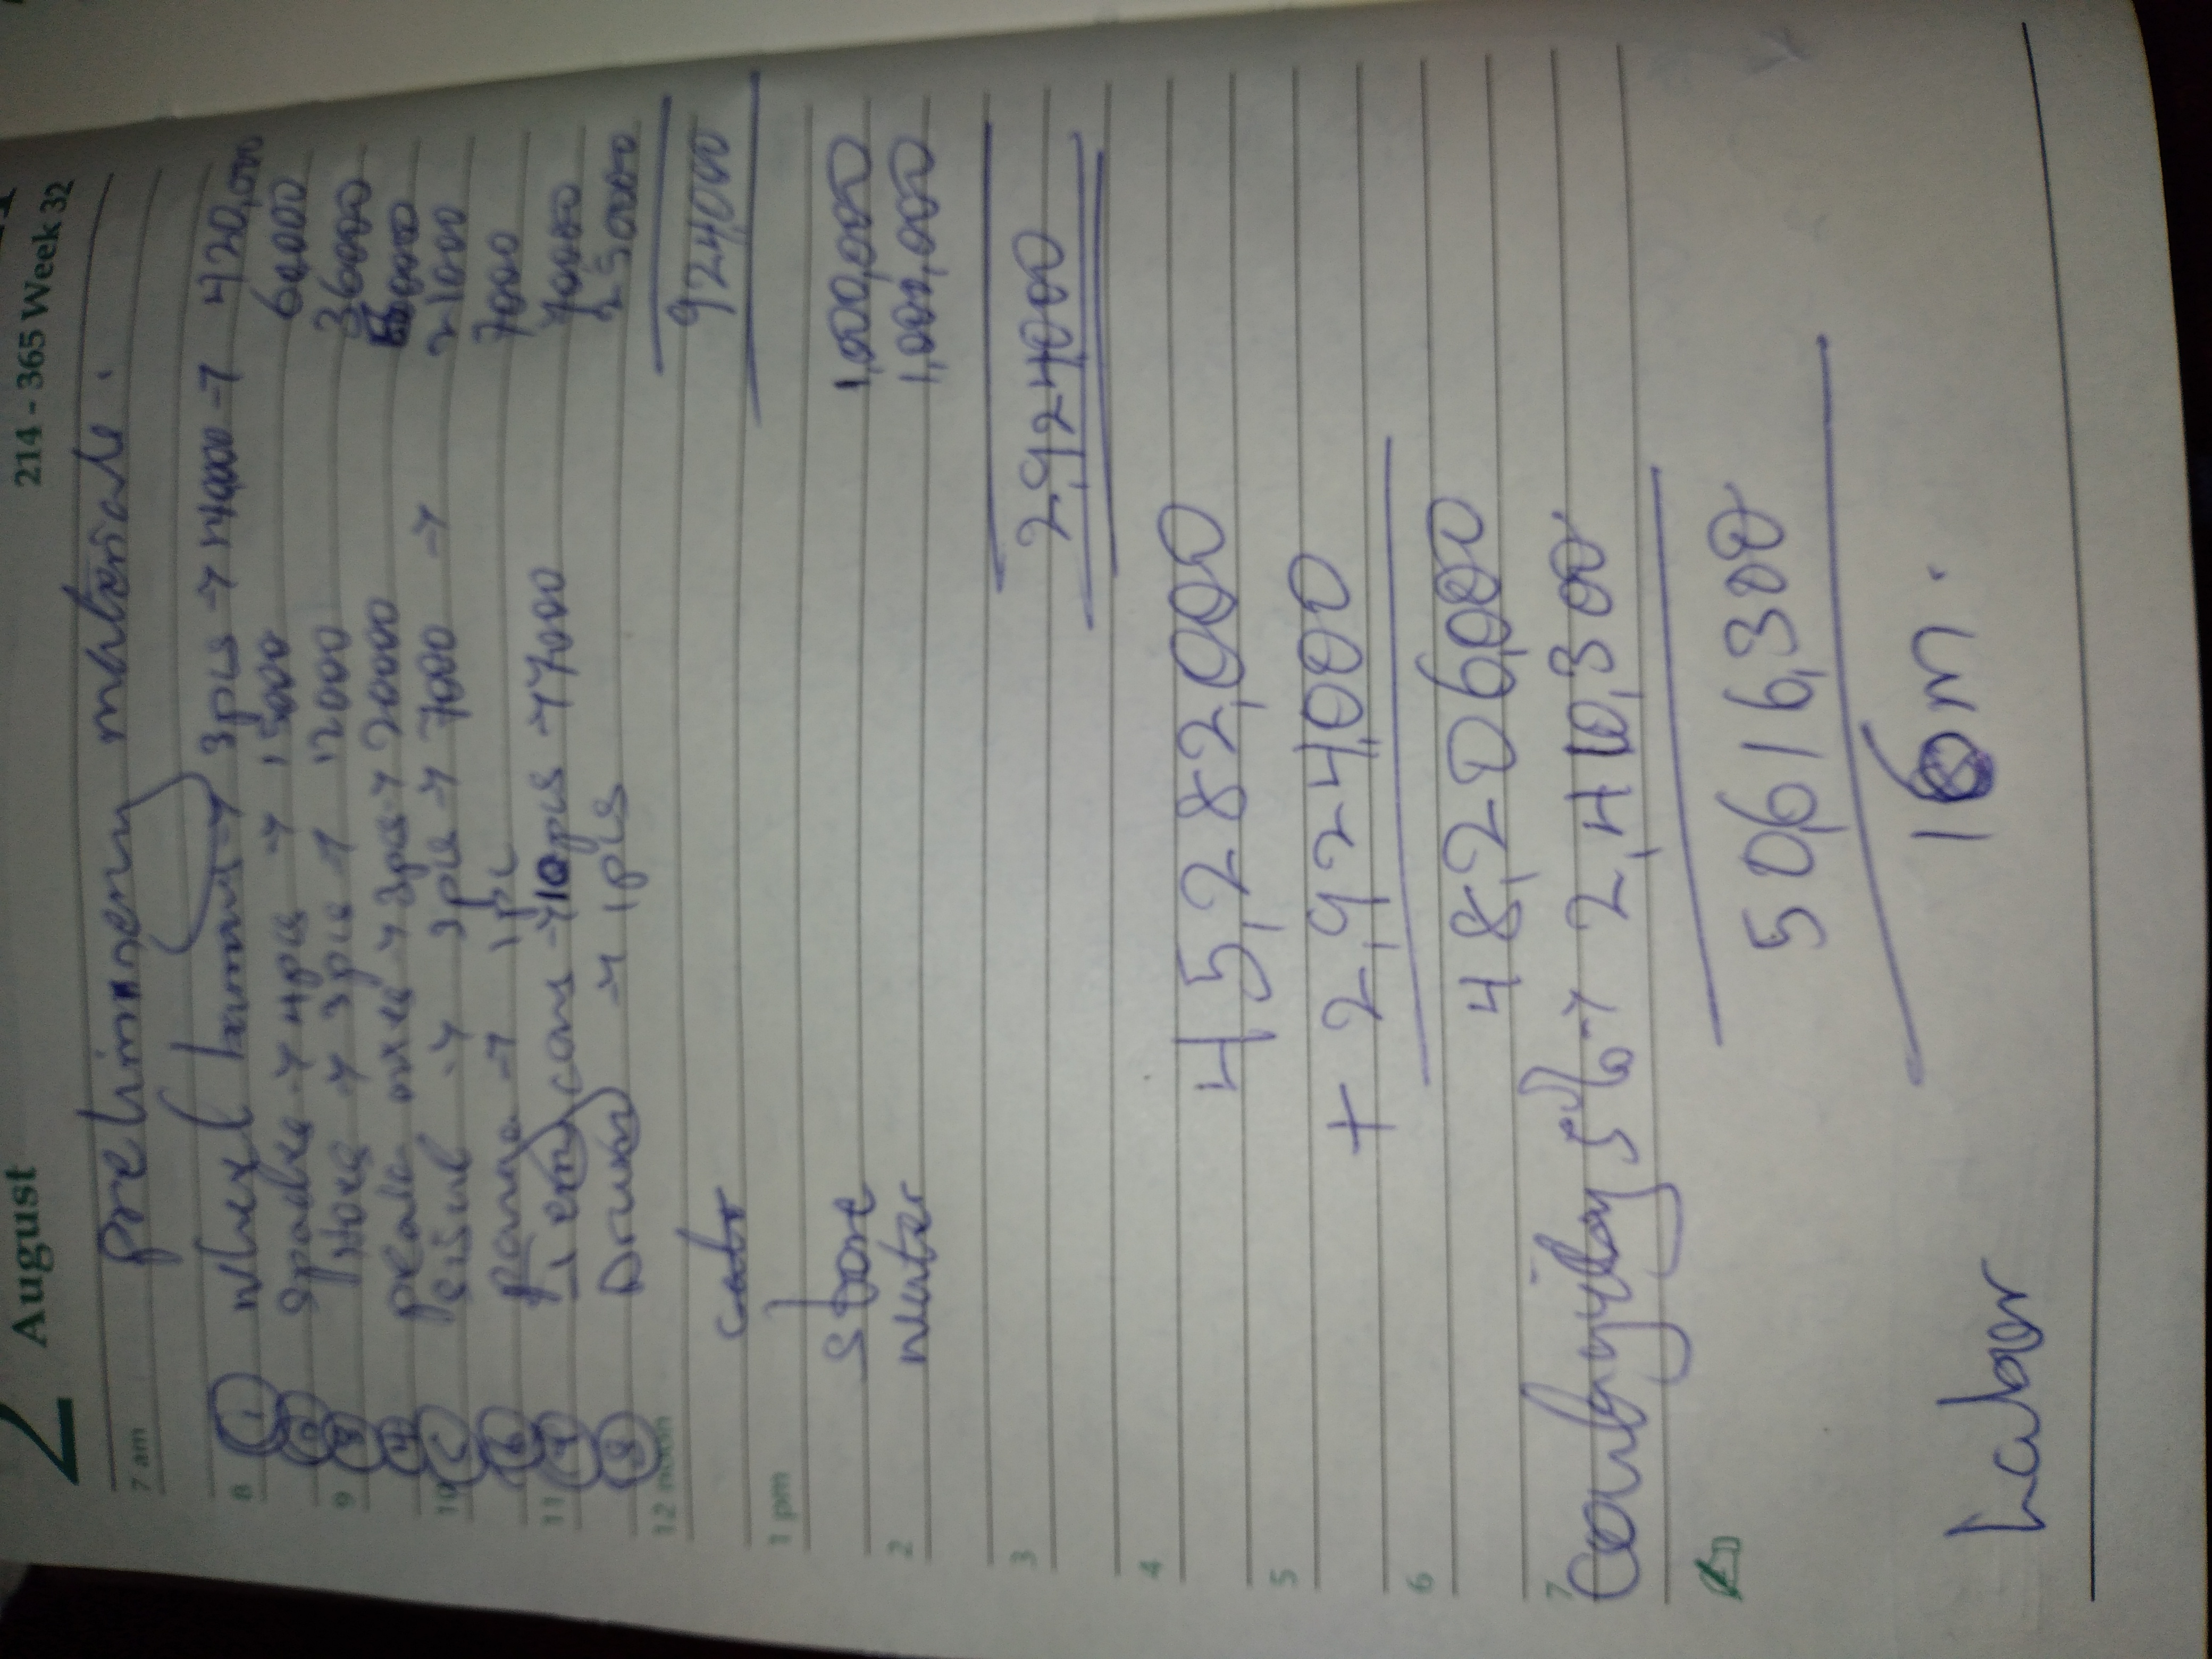 2 August
214 - 365 Week 32
7 am preliminery materials.
8 1 wheel barrows → 3pcs → 140,000 → 420,000
2 spades → 4pcs → 15000 60000
9 3 Hoes → 3pcs → 12000 36000
4 axes → 3pcs → 20000 60000
10 5 sisul → 3pcs → 7000 → 21000
6 panga → 1pc 7000
11 Jerry cans → 10pcs → 7000 70000
8 Drum → 1pcs 250000
12 noon
924,000
1 pm
store 1,000,000
2 water 1,000,000
3 2,924,000
4
45,282,000
5
+ 2,924,000
6
48,206,000
7 5% → 2,410,300
50,616,300
16m.
Labor